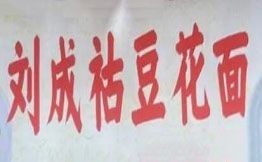 刘成祜豆花面